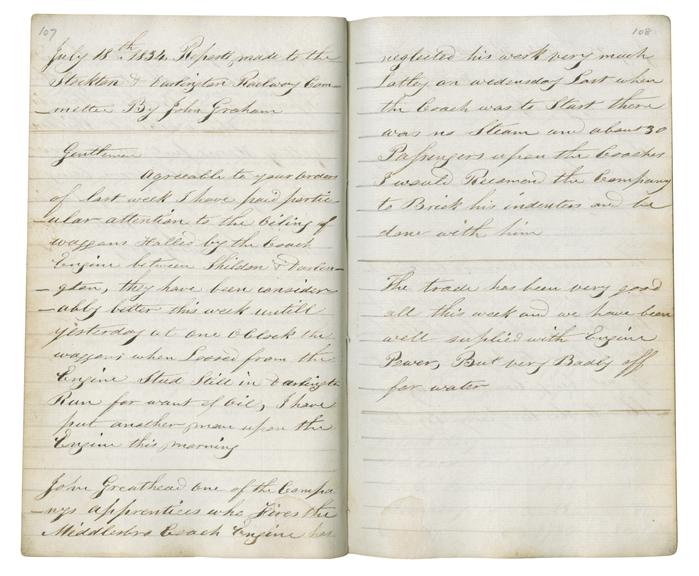 107
July 18th 1834 Report made to the
Stockton & Darlington Railway Com-
-mettee By John Graham
Gentlemen
Agreeable to your orders
of last week I have paid partic
-ular attention to the Oiling of
waggons Halled by the Coach
Engine between Shildon & Darlen-
-gton, they have been consider
-ably better this week untill
yesterday at one O Clock the
waggons when Loosed from the
Engine Stud Still in Darlington
Run for want of Oil, I have
put another man upon the
Engine this morning
John Greathead one of the Compa
-nys apprentices who Fires the
Middlesbro Coach Engine has
108
neglected his work very much
Latley on wedensday Last when
the Coach was to Start there
was no Steam and about 30
Passengers upon the Coaches
I would Recomend the Company
to Brick his indenters and be
done with him
The trade has been very good
all this week and we have been
well suplied with Engine
Power, But very Badly off
for water